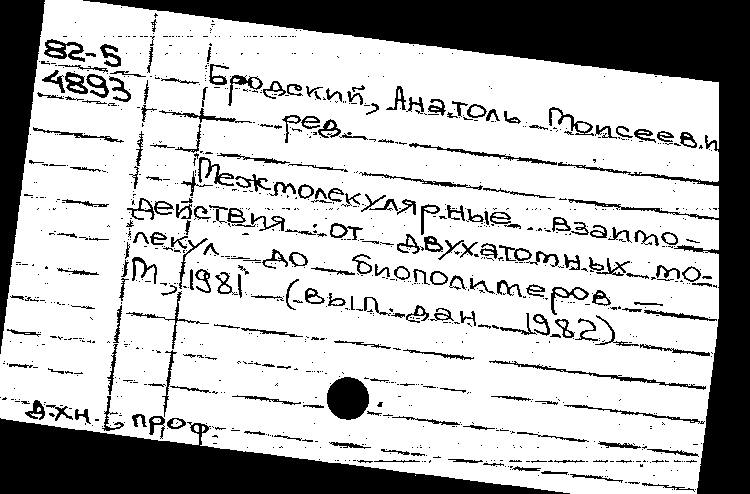 82-5
4893
Бродский, Анатоль Моисеев.
ред.
Межмолекулярные взаимо-
действия : от двухатомных мо-
лекул до биополимеров —
М, 1981 (вып. дан 1982)
д.хн., проф.